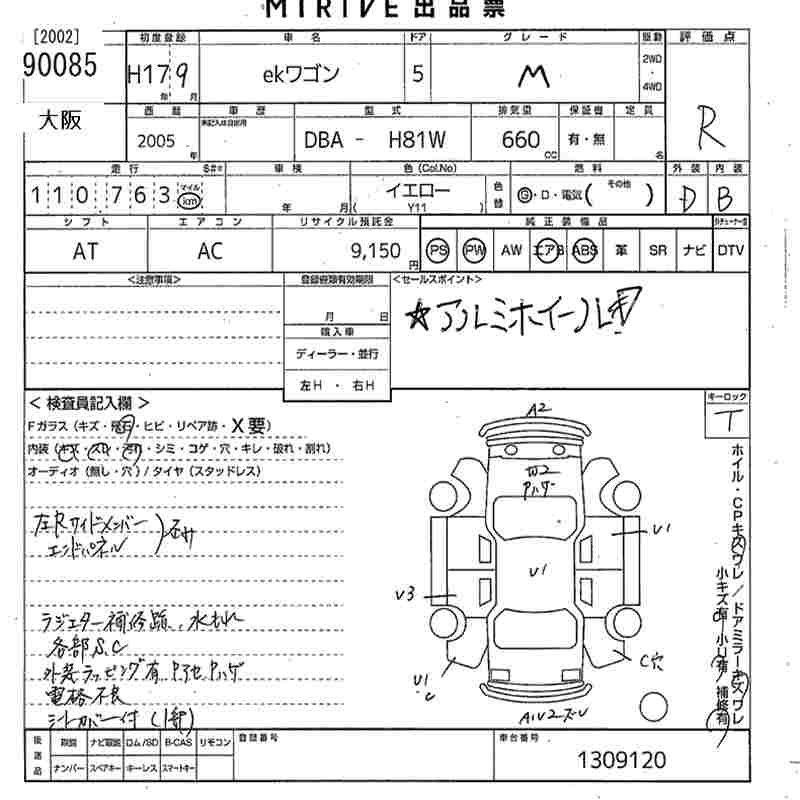 MIRIVE 出品票
[2002]
90085
大阪
初度登録 車名 ドア グレード 駆動 評価点
H17 9 年 月 ekワゴン 5 M 2WD ・ 4WD R
西暦 車歴 型式 排気量 保証書 定員
2005 年 未記入は自家用 DBA - H81W 660 CC 有・無 名
走行 車検 色(Col.No) 燃料 外装 内装
110763 マイル km 年 月 イエロー ( Y11 ) 色替 G・D・電気( その他 ) D B
シフト エアコン リサイクル預託金 純正装備品
AT AC 9,150 円 PS PW AW エアB ABS 革 SR ナビ DTV
<注意事項> 登録書類有効期限 <セールスポイント>
月 日
☆アルミホイール
輸入車
ディーラー・並行
左H ・ 右H
< 検査員記入欄 > キーロック
T
Fガラス (キズ・飛石・ヒビ・リペア跡・X要)
内装 (キズ・スレ・汚れ・シミ・コゲ・穴・キレ・破れ・割れ)
オーディオ (無し・穴) / タイヤ (スタッドレス)
左Rサイドメンバー
エンドパネル
ラジエター補修跡、水もれ
各部S.C
外装ラッピング有
電格不良
シートカバー付 (1部)
A2
W2
U1
U1
U3
U1
C
C穴
ホイル・CPキズワレ / ドアミラーキズワレ
小キズ有 小U有 補修有
後送品 取説 ナビ取説 ロム/SD B-CAS リモコン 登録番号 車台番号
ナンバー スペアキー キーレス スマートキー 1309120